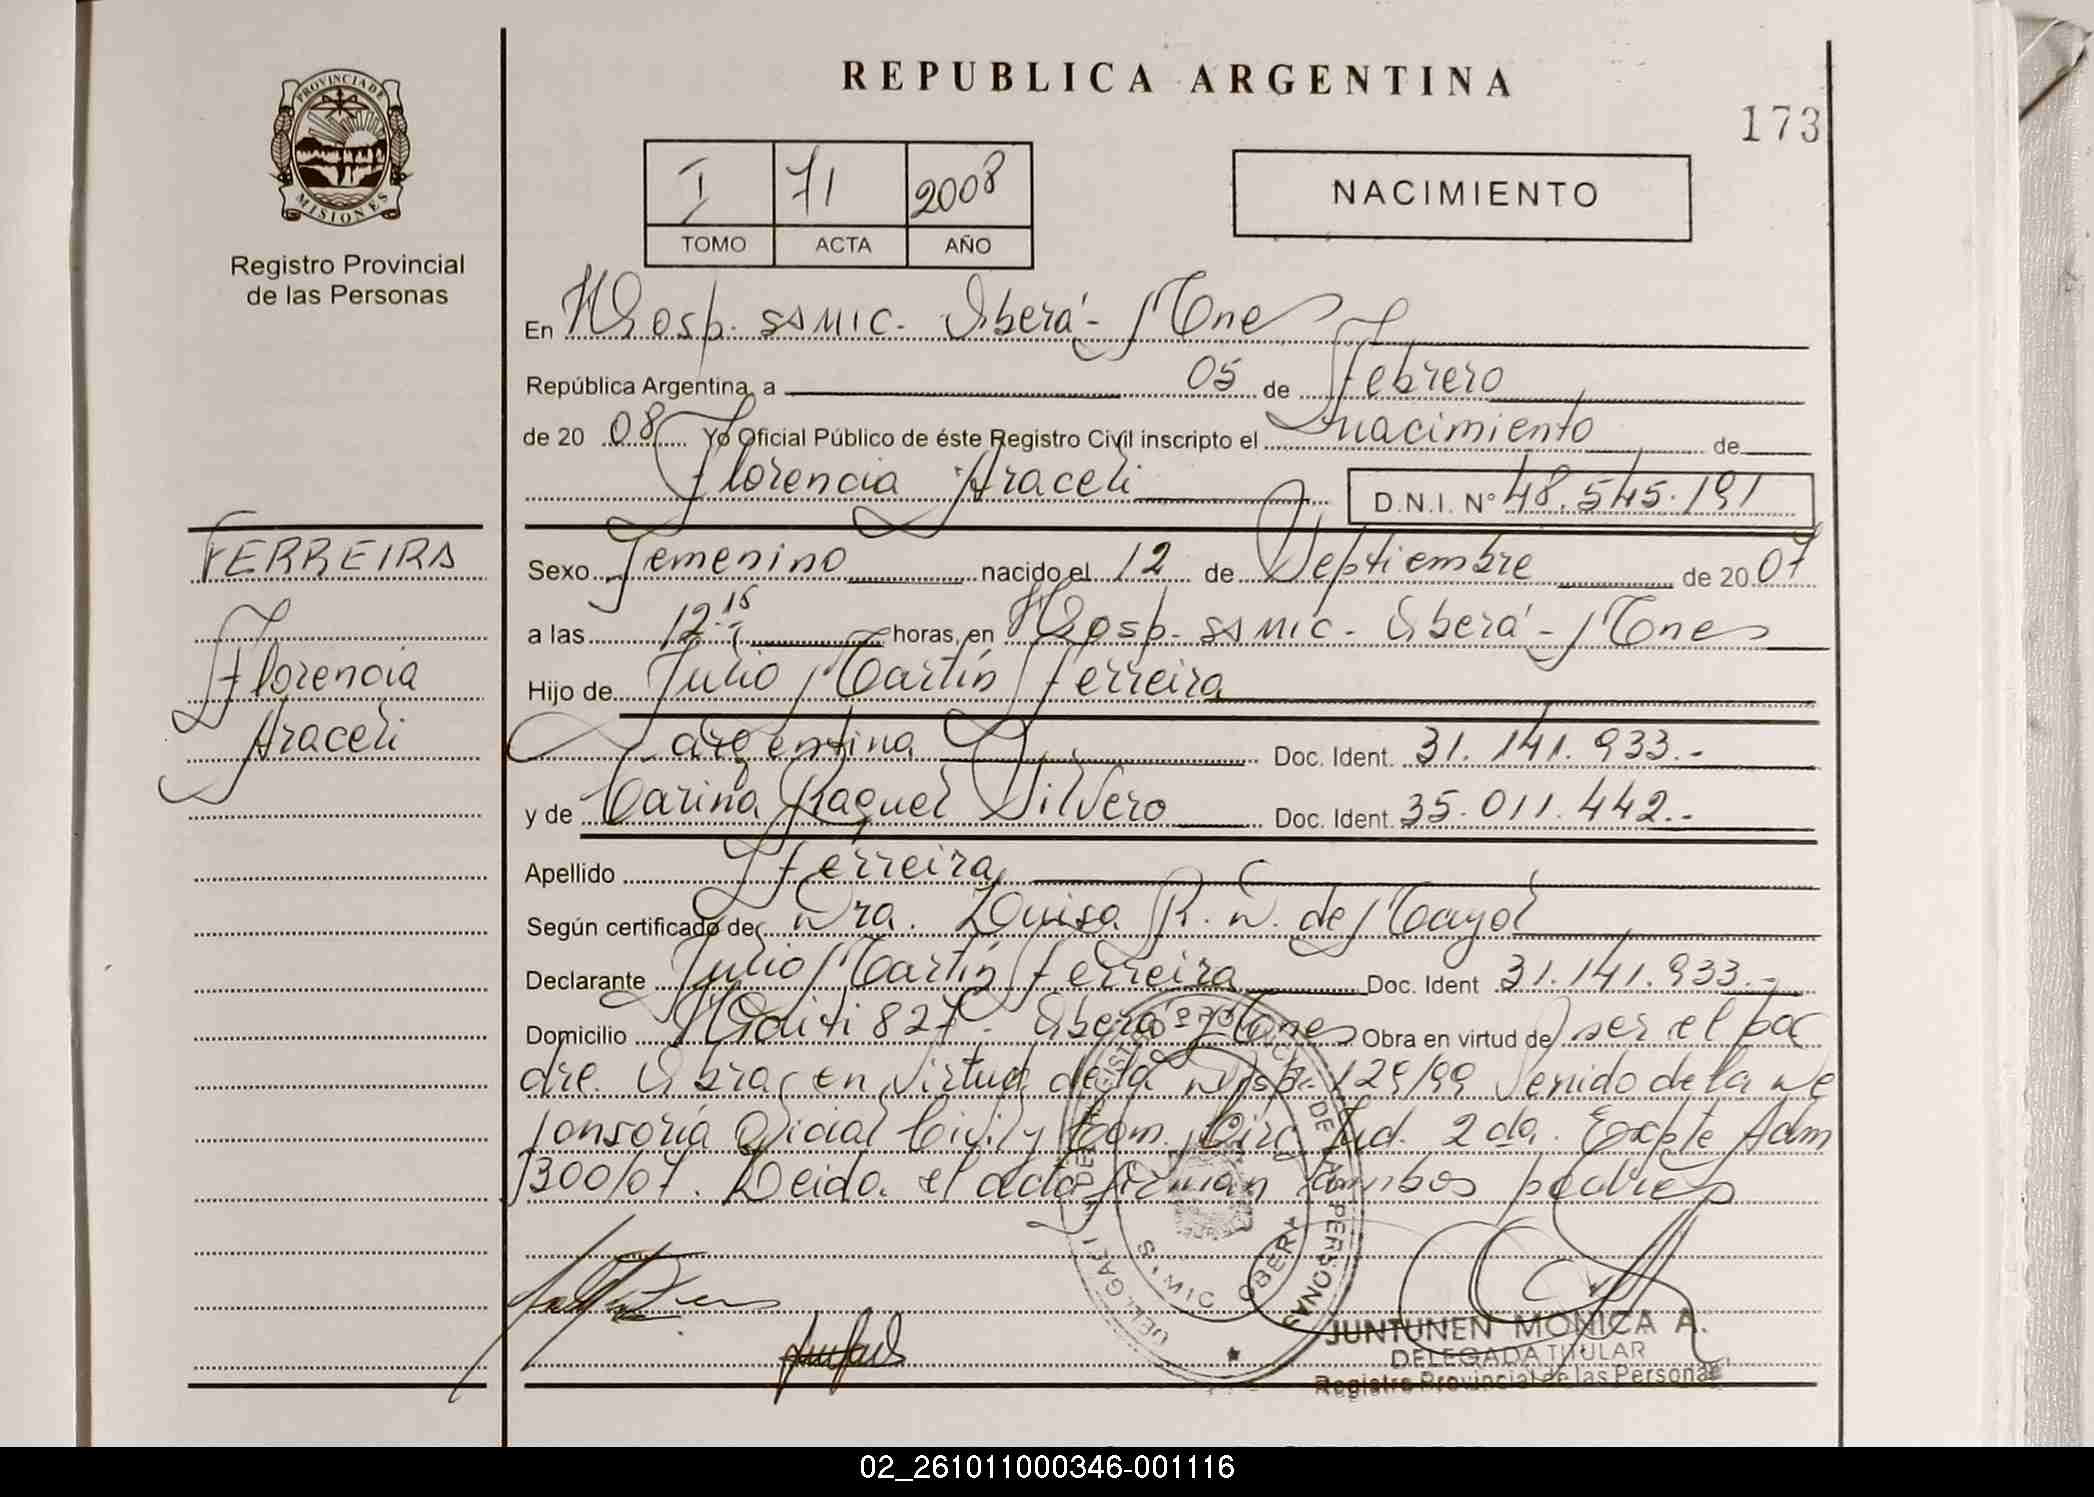 PROVINCIA DE
MISIONES
Registro Provincial
de las Personas
REPUBLICA ARGENTINA
173
I 71 2008
TOMO ACTA AÑO
NACIMIENTO
En Hosp. SAMIC. Oberá - Mnes
República Argentina, a 05 de Febrero
de 20 08 Yo Oficial Público de éste Registro Civil inscripto el nacimiento de
Florencia Araceli D.N.I. Nº 48.545.191
FERREIRA
Florencia
Araceli
Sexo Femenino nacido el 12 de Septiembre de 20 07
a las 12.15 horas, en Hosp. SAMIC - Oberá - Mnes
Hijo de Julio Martín Ferreira
argentina Doc. Ident. 31.141.933.-
y de Carina Raquel Silvero Doc. Ident. 35.011.442.-
Apellido Ferreira
Según certificado de Dra. Luisa R. D. de Mayol
Declarante Julio Martín Ferreira Doc. Ident 31.141.933.-
Domicilio 827 - Oberá - Mnes Obra en virtud de ser el pa
dre. Obra en virtud de la Disp. 129/99 Venido de la De
fensoría Oficial Civil y Com. Circ. Jud. 2da. Expte Adm
1300/07. Leida el acta firman ambos padres
DELEGACION
REGISTRO PROVINCIAL DE LAS PERSONAS
OBERA
JUNTUNEN MONICA A.
DELEGADA TITULAR
Registro Provincial de las Personas
02_261011000346-001116